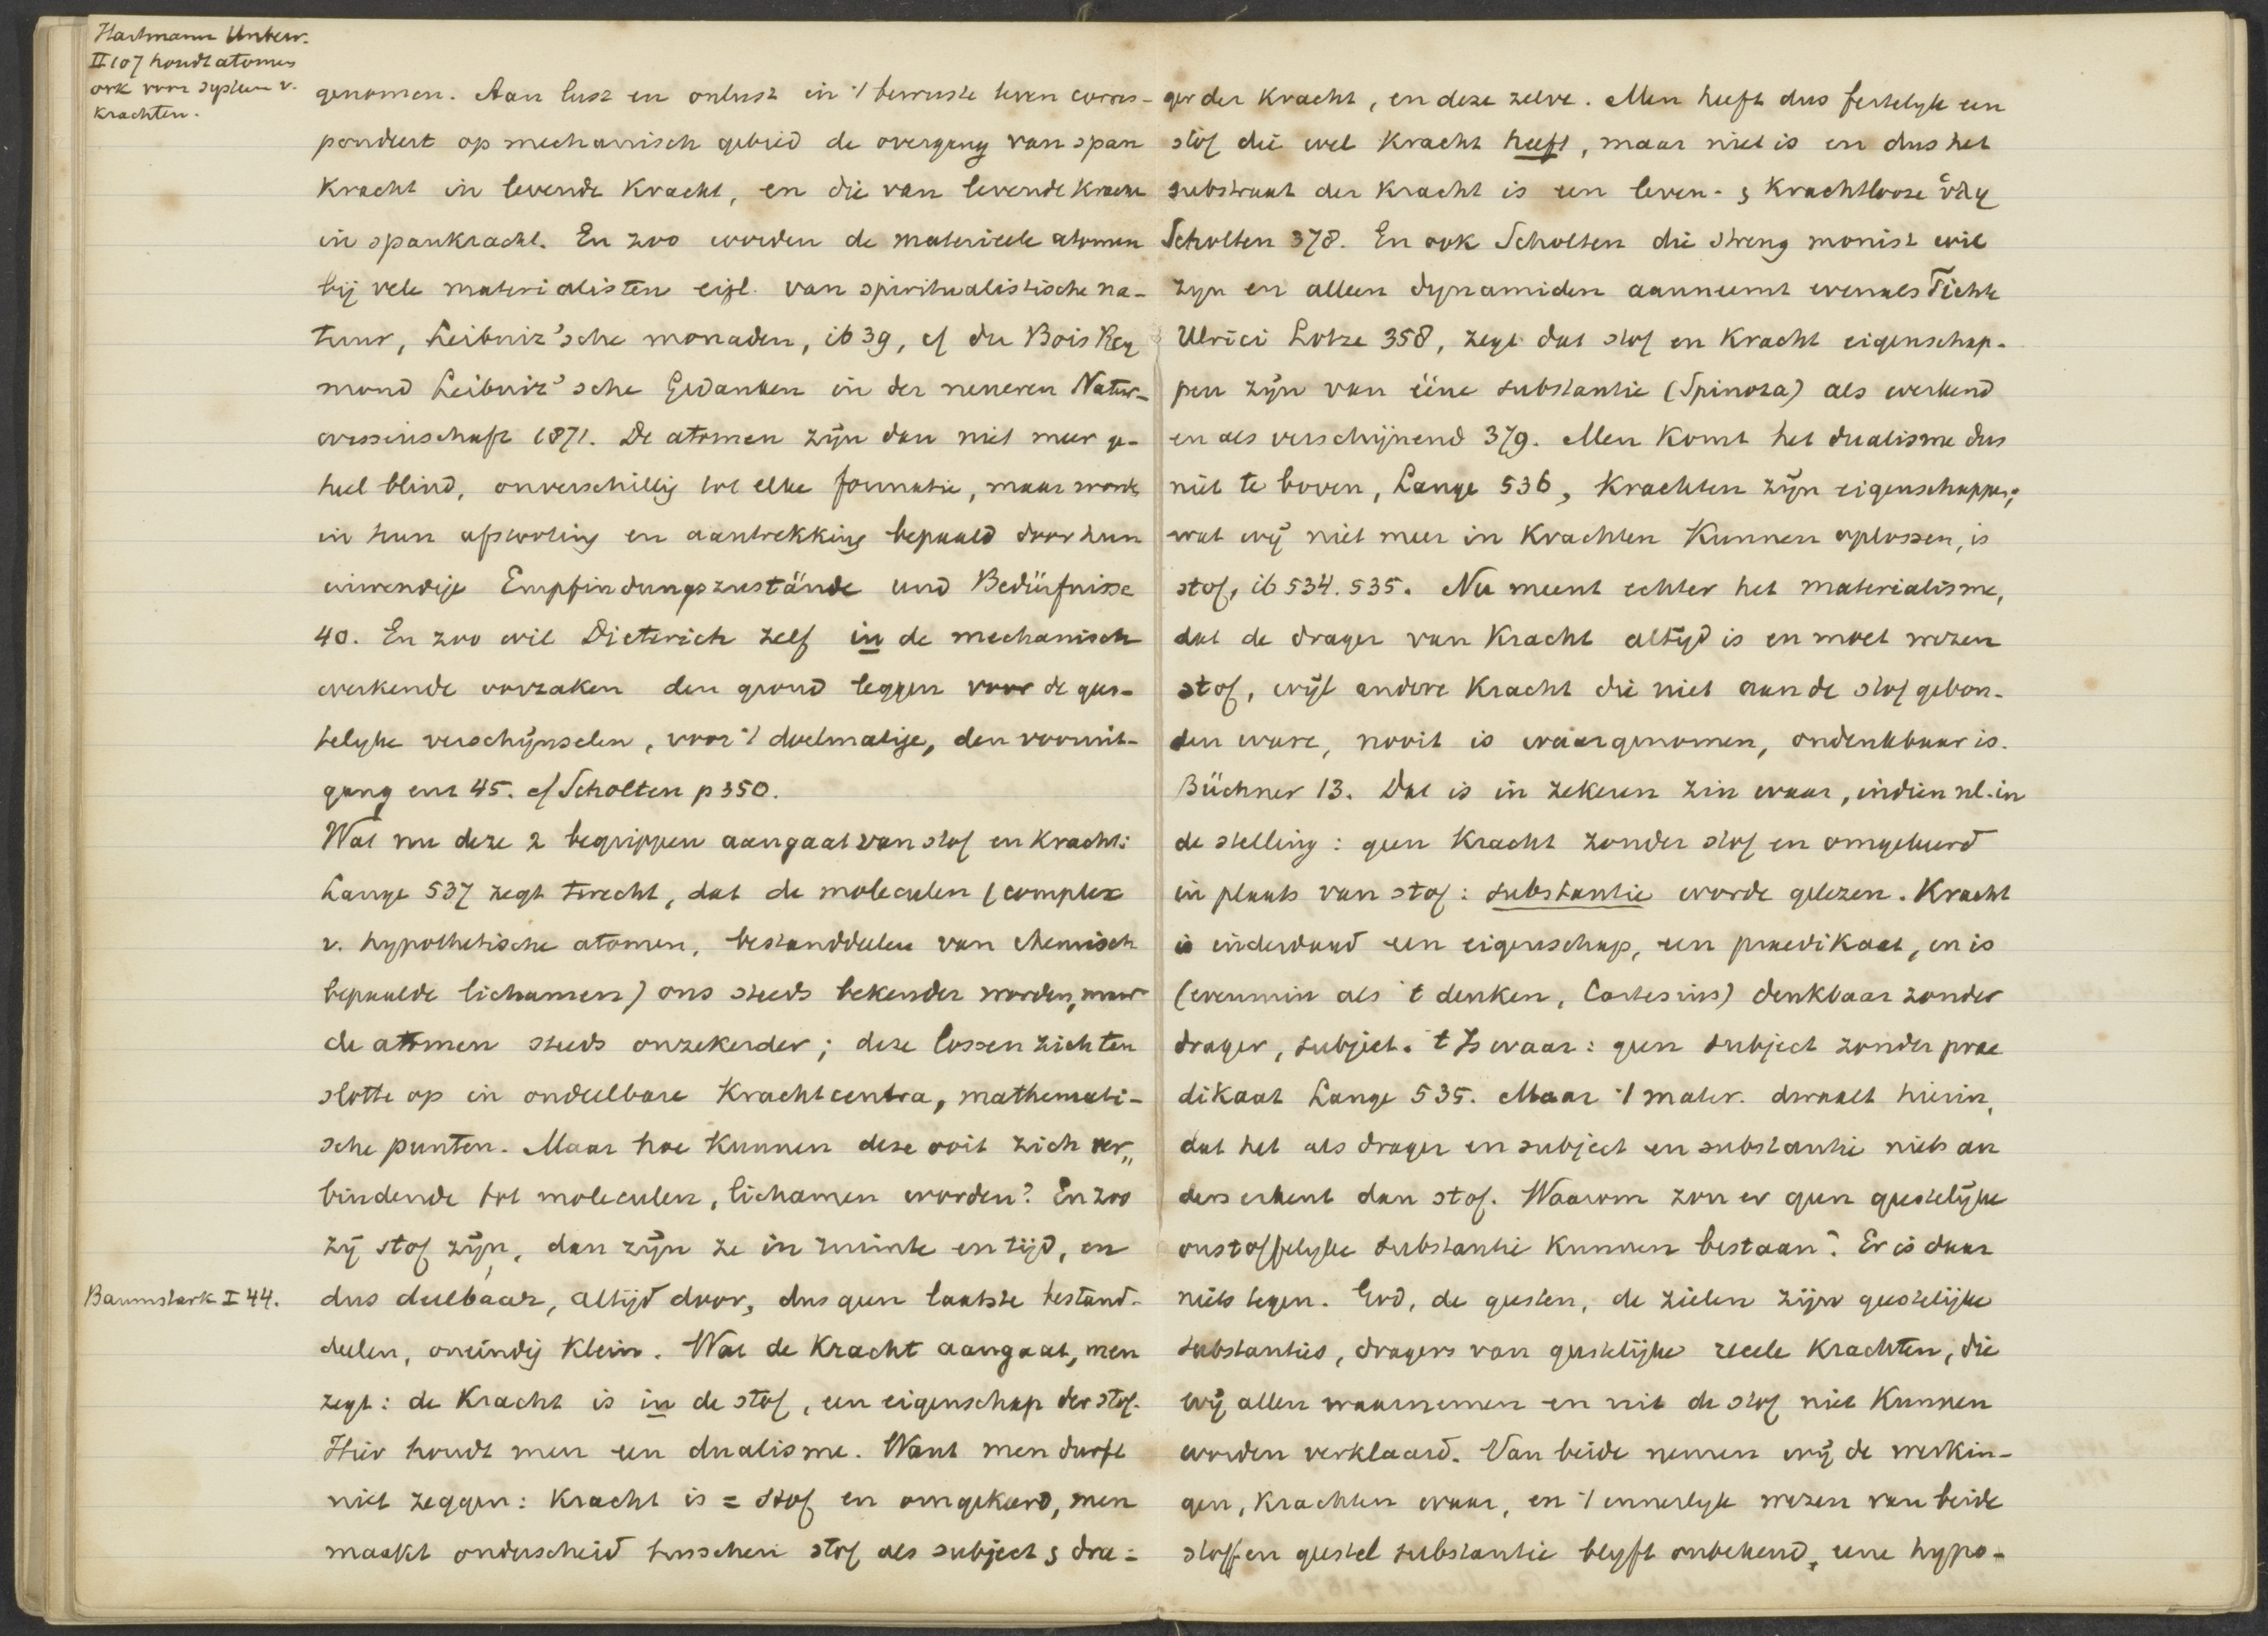 Hartmann Unbew.
II 107 houdt atomen
ook voor systeem v.
Krachten.
genomen. Aan lust en onlust in 't bewuste leven corres-
pondeert op mechanisch gebied de overgang van span
Kracht in levende Kracht, en die van levende Kracht
in spankracht. En zoo worden de materieele atomen
bij vele materialisten eigl. van spiritualistische na-
tuur, Leibniz'sche monaden, ib 39, cf du Bois Rey
mond Leibniz'sche Gedanken in der neueren Natur-
wissenschaft 1871. De atomen zijn dan niet meer ge-
heel blind, onverschillig tot elke formatie, maar word.
in hun afstooting en aantrekking bepaald door hun
inwendige Empfindungszustände und Bedürfnisse
40. En zoo wil Dieterich zelf in de mechanisch
werkende oorzaken den grond leggen voor de gees-
telyke verschijnselen, voor 't doelmatige, den vooruit-
gang enz 45. cf Scholten p 350.
Wat nu deze 2 begrippen aangaat van stof en Kracht:
Lange 537 zegt terecht, dat de moleculen (complex
v. hypothetische atomen, bestanddeelen van chemisch
bepaalde lichamen) ons steeds bekender worden, maar
de atomen steeds onzekerder; deze lossen zich ten
slotte op in ondeelbare Krachtcentra, mathemati-
sche punten. Maar hoe Kunnen deze ooit zich ver„
bindende tot moleculen, lichamen worden? En zoo
zij stof zijn, dan zijn ze in ruimte en tijd, en
Baumstark I 44.
dus deelbaar, altijd door, dus geen laatste bestand-
deelen, oneindig Klein. Wat de Kracht aangaat, men
zegt: de Kracht is in de stof, een eigenschap der stof.
Hier houdt men een dualisme. Want men durft
niet zeggen: Kracht is = stof en omgekeerd, men
maakt onderscheid tusschen stof als subject & dra=
ger der Kracht, en deze zelve. Men heeft dus feitelyk een
stof die wel Kracht heeft, maar niet is en dus het
substraat der Kracht is een leven- & Krachtlooze ὕλη
Scholten 378. En ook Scholten die streng monist wil
zyn en alleen dynamiden aanneemt evenals Fichte
Ulrici Lotze 358, zegt dat stof en Kracht eigenschap-
pen zijn van ééne substantie (Spinoza) als werkend
en als verschijnend 379. Men Komt het dualisme dus
niet te boven, Lange 536, Krachten zijn eigenschappen;
wat wij niet meer in Krachten Kunnen oplossen, is
stof, ib 534. 535. Nu meent echter het materialisme,
dat de drager van Kracht altijd is en moet wezen
stof, wijl andere Kracht die niet aan de stof gebon-
den ware, nooit is waargenomen, ondenkbaar is.
Büchner 13. Dat is in zekeren zin waar, indien nl. in
de stelling: geen Kracht zonder stof en omgekeerd
in plaats van stof: substantie worde gelezen. Kracht
is inderdaad een eigenschap, een praedikaat, en is
(evenmin als 't denken, Cartesius) denkbaar zonder
drager, subject. 't Is waar: geen subject zonder prae
dikaat Lange 535. Maar 't mater. dwaalt hierin,
dat het als drager en subject en substantie niets an
ders erkent dan stof. Waarom zou er geen geestelijke
onstoffelyke substantie Kunnen bestaan? Er is daar
niets tegen. God, de geesten, de zielen zijn geestelijke
substanties, dragers van geestelijke reeele Krachten, die
wij allen waarnemen en uit de stof niet Kunnen
worden verklaard. Van beide nemen wij de werkin-
gen, Krachten waar, en 't innerlyk wezen van beide
stoff en geestel substantie blyft onbekend, eene hypo-